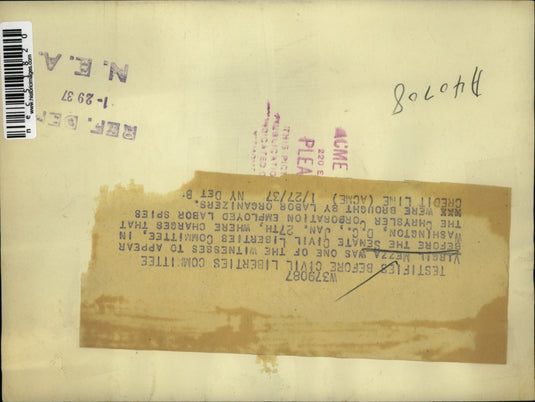 W379087
TESTIFIES BEFORE CIVIL LIBERTIES COMMITTEE
VIRGIL MEZZA WAS ONE OF THE WITNESSES TO APPEAR
BEFORE THE SENATE CIVIL LIBERTIES COMMITTEE, IN
WASHINGTON, D.C., JAN. 27TH, WHERE CHARGES THAT
THE CHRYSLER CORPORATION EMPLOYED LABOR SPIES
WERE BROUGHT BY LABOR ORGANIZERS.
CREDIT LINE (ACME) 1/27/37 NY DET
ACME
220 E
PLEA
THIS PIC
PUBLICATIO
REF. DET
1-29 37
N. E. A.
A40708